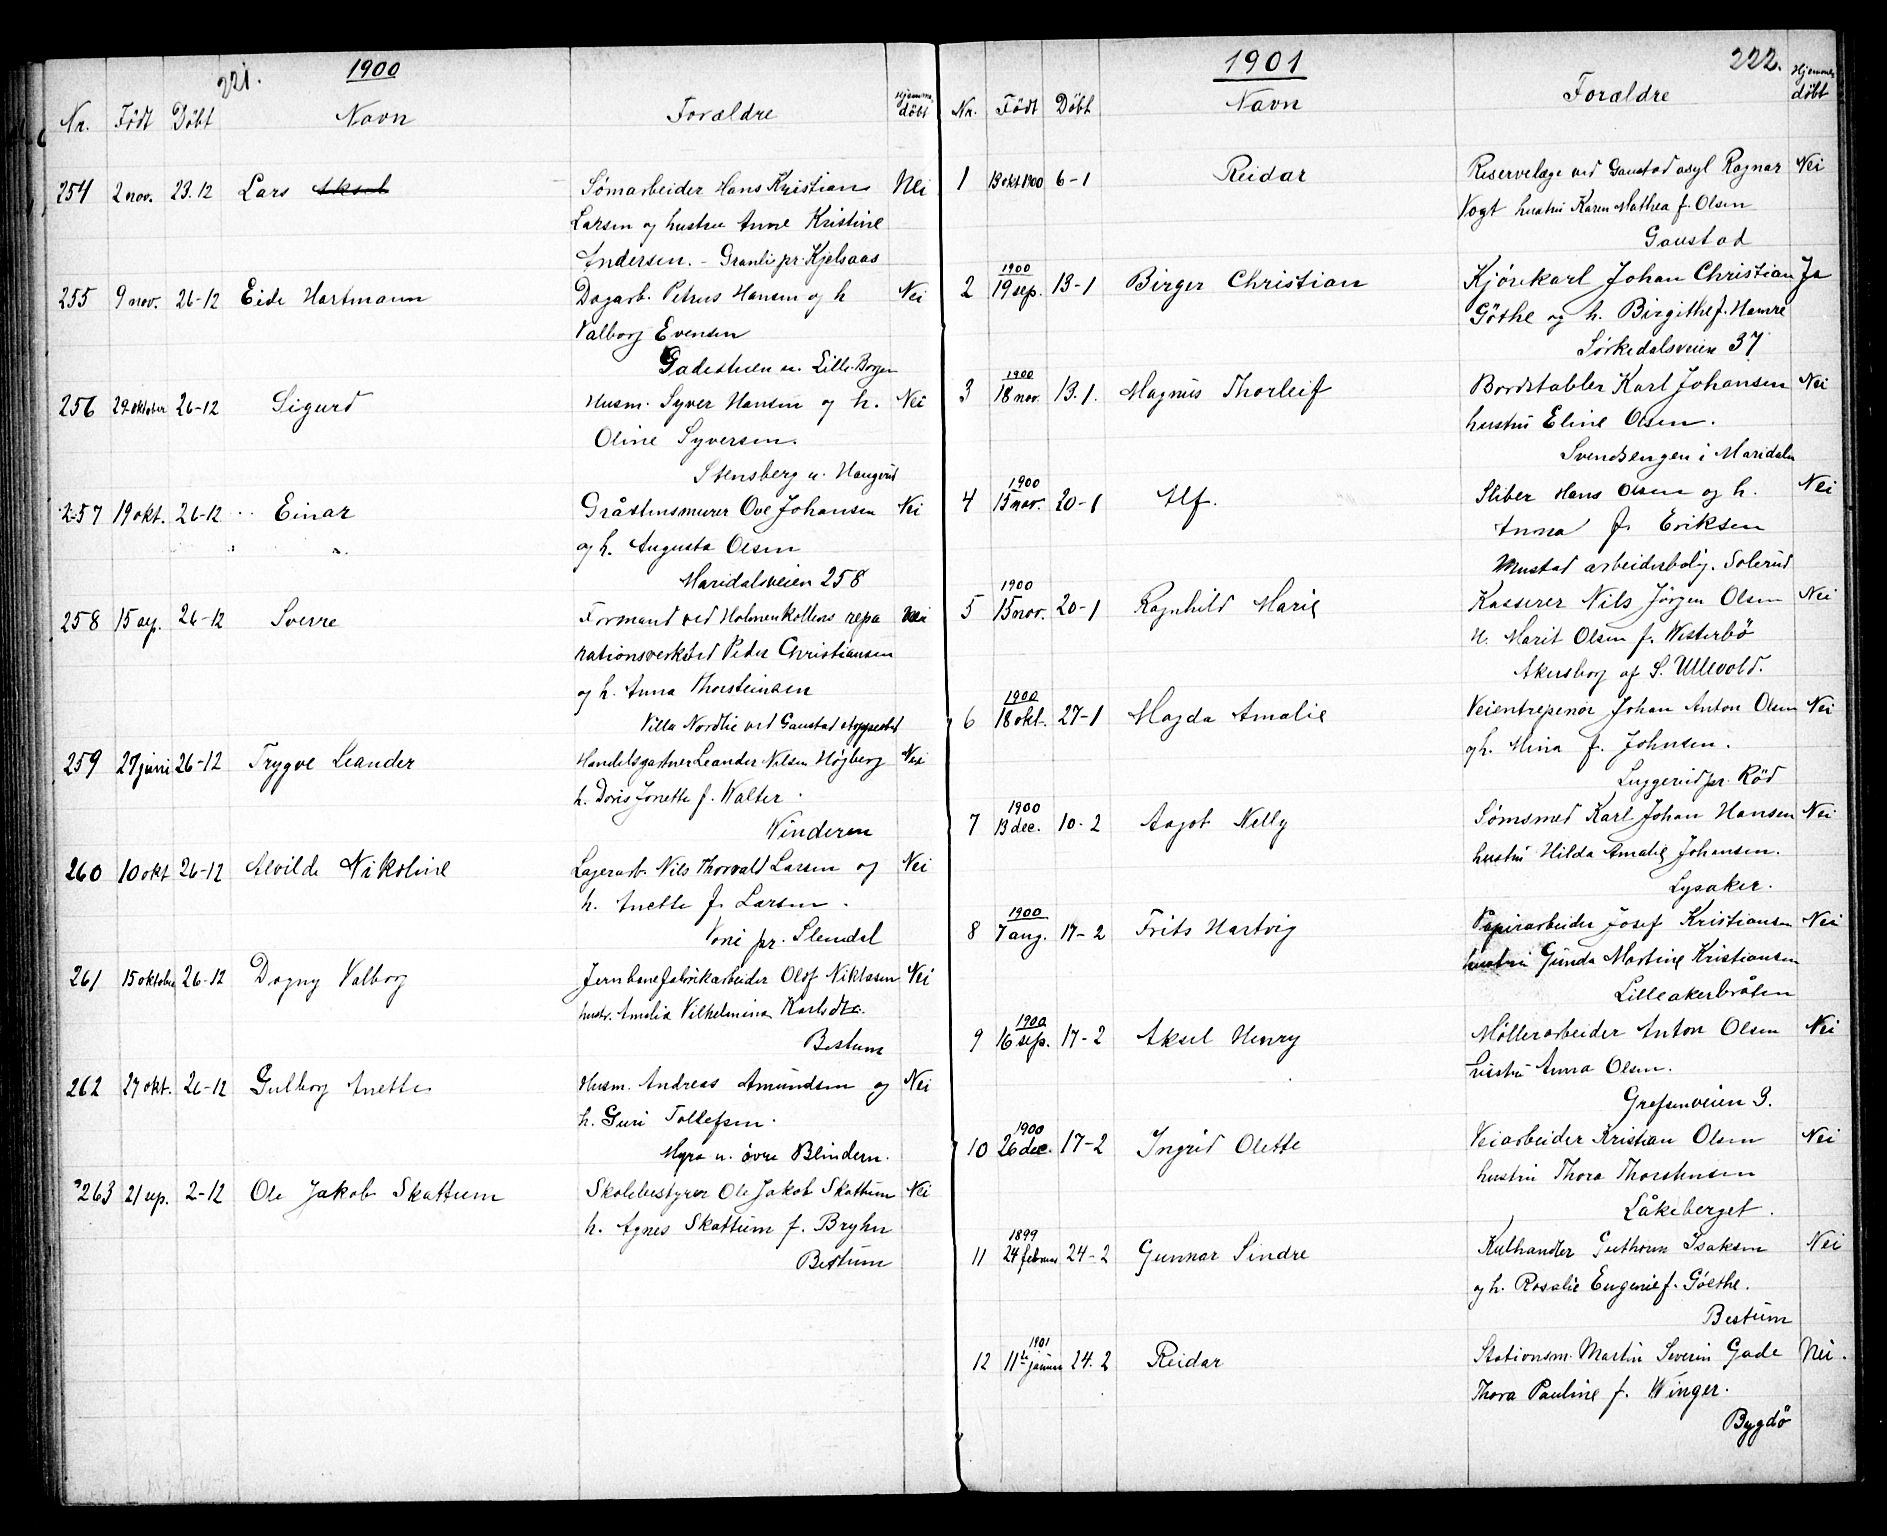 221. 1900
Nr. Født Døbt Navn Forældre Hjemmedøbt
254 2 nov. 23.12 Lars Aksel Sømarbeider Hans Kristian Nei
Larsen og hustru Anne Kristine
Andersen. - Granli pr. Kjelsaas
255 9 nov. 26-12 Eide Hartmann Dagarb. Petrus Hansen og h Nei
Valborg Evensen
Gadestuen u. Lille-Borgen
256 29 oktober 26-12 Sigurd Husm. Syver Hansen og h. Nei
Oline Syversen.
Stensberg u. Haugerud
257 19 okt. 26-12 Einar Gråstensmurer Ove Johansen Nei
og h. Augusta Olsen
Maridalsveien 258
258 15 sep. 26-12 Sverre Formand ved Holmenkollens repa Nei
rationsverksted Peder Christiansen
og h. Anna Thorsteinsen
Villa Nordlie ved Gaustad stoppested
259 27 juni 26-12 Trygve Leander Handelsgartner Leander Nilsen Højberg Nei
h. Doris Jonette f. Walter.
Vinderen
260 10 okt 26-12 Alvilde Nikoline Lagerarb. Nils Thorvald Larsen og Nei
h. Anette f. Larsen.
Voni pr. Slemdal
261 15 oktober 26-12 Dagny Valborg Jernbanefabrikarbeider Olof Niklasen Nei
hustr. Amalia Vilhelmina Karlsdtr.
Bestum
262 27 okt. 26-12 Gulborg Anette Husm. Andreas Amundsen og Nei
h. Guri Tollefsen.
Myra u. øvre Blindern.
263 21 sep. 2-12 Ole Jakob Skattum Skolebestyrer Ole Jakob Skattum Nei
h. Agnes Skattum f. Bryhn
Bestum
1901 222.
Nr. Født Døbt Navn Forældre Hjemmedøbt
1 13 okt 1900 6-1 Reidar Reservelæge ved Gaustad asyl Ragnar Nei
Vogt hustru Karen Mathea f. Olsen
Gaustad
2 1900 19 sep. 13-1 Birger Christian Kjørekarl Johan Christian Ja
Göthe og h. Birgithe f. Hamre
Sørkedalsveien 37
3 1900 18 nov. 13.1. Magnus Thorleif Bordstabler Karl Johansen Nei
hustru Eline Olsen.
Svendsengen i Maridalen
4 1900 15 nov. 20-1 Alf. Sliber Hans Olsen og h. Nei
Anna f. Eriksen
Mustad arbeiderbolig. Solerud
5 1900 15 nov. 20-1 Ragnhild Marie Kasserer Nils Jørgen Olsen Nei
H. Marit Olsen f. Westerbø
Akersborg af S. Ullevold.
6 1900 18 okt. 27-1 Magda Amalie Veientrepenør Johan Anton Olsen Nei
og h. Mina f. Johnsen.
Luggerud pr. Röd
7 1900 13 dec. 10-2 Aagot Nelly Sømsmed Karl Johan Hansen Nei
hustru Hilda Amalie Johansen.
Lysaker.
8 1900 7 aug. 17-2 Frits Hartvig Papirarbeider Josef Kristiansen Nei
hustru Gunda Martine Kristiansen
Lilleakerbråten
9 1900 16 sep. 17-2 Aksel Henry Møllerarbeider Anton Olsen Nei
hustru Anna Olsen.
Grefsenveien 3.
10 1900 26 dec. 17-2 Ingrid Olette Veiarbeider Kristian Olsen Nei
hustru Thora Thorstensen
Låkeberget.
11 1899 24 februar 24-2 Gunnar Sindre Kulhandler Guthorm Isaksen Nei
og h. Rosalie Eugenie f. Göethe.
Bestum
12 1901 11te januar 24.2 Reidar Stationsm. Martin Severin Gade Nei.
Thora Pauline f. Winger.
Bygdö